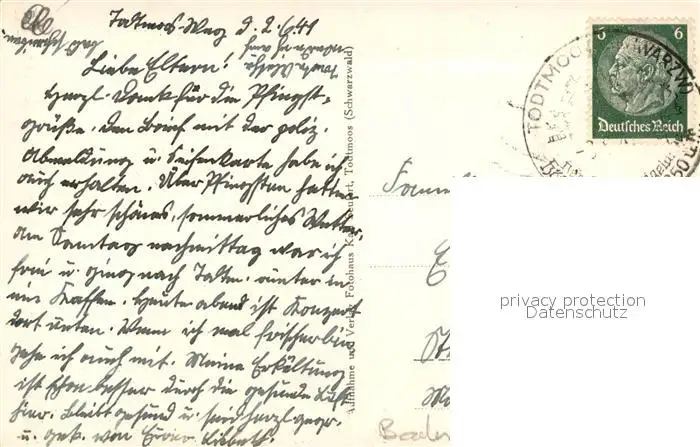 Todtmoos-Weg, d. 2.6.41
Liebe Eltern!
Herzl. Dank für die Pfingst-
grüße. Den Brief mit der poliz.
Abmeldung u. Seifenkarte habe ich
auch erhalten. Über Pfingsten hatten
wir sehr schönes, sommerliches Wetter.
Am Samstag nachmittag war ich
frei u. ging nach Todtm. runter in
ein Kaffee. Heute abend ist Konzert
dort unten. Wenn ich mal frischer bin
gehe ich auch mit. Meine Erkältung
ist schon besser durch die gesunde Luft
hier. Bleibt gesund u. seid herzl. gegr.
u. gek. von Eurer
Aufnahme und Verlag: Fotohaus Neufert, Todtmoos (Schwarzwald)
6 6
Deutsches Reich
TODTMOOS SCHWARZW
Famil
privacy protection
Datenschutz
Baden